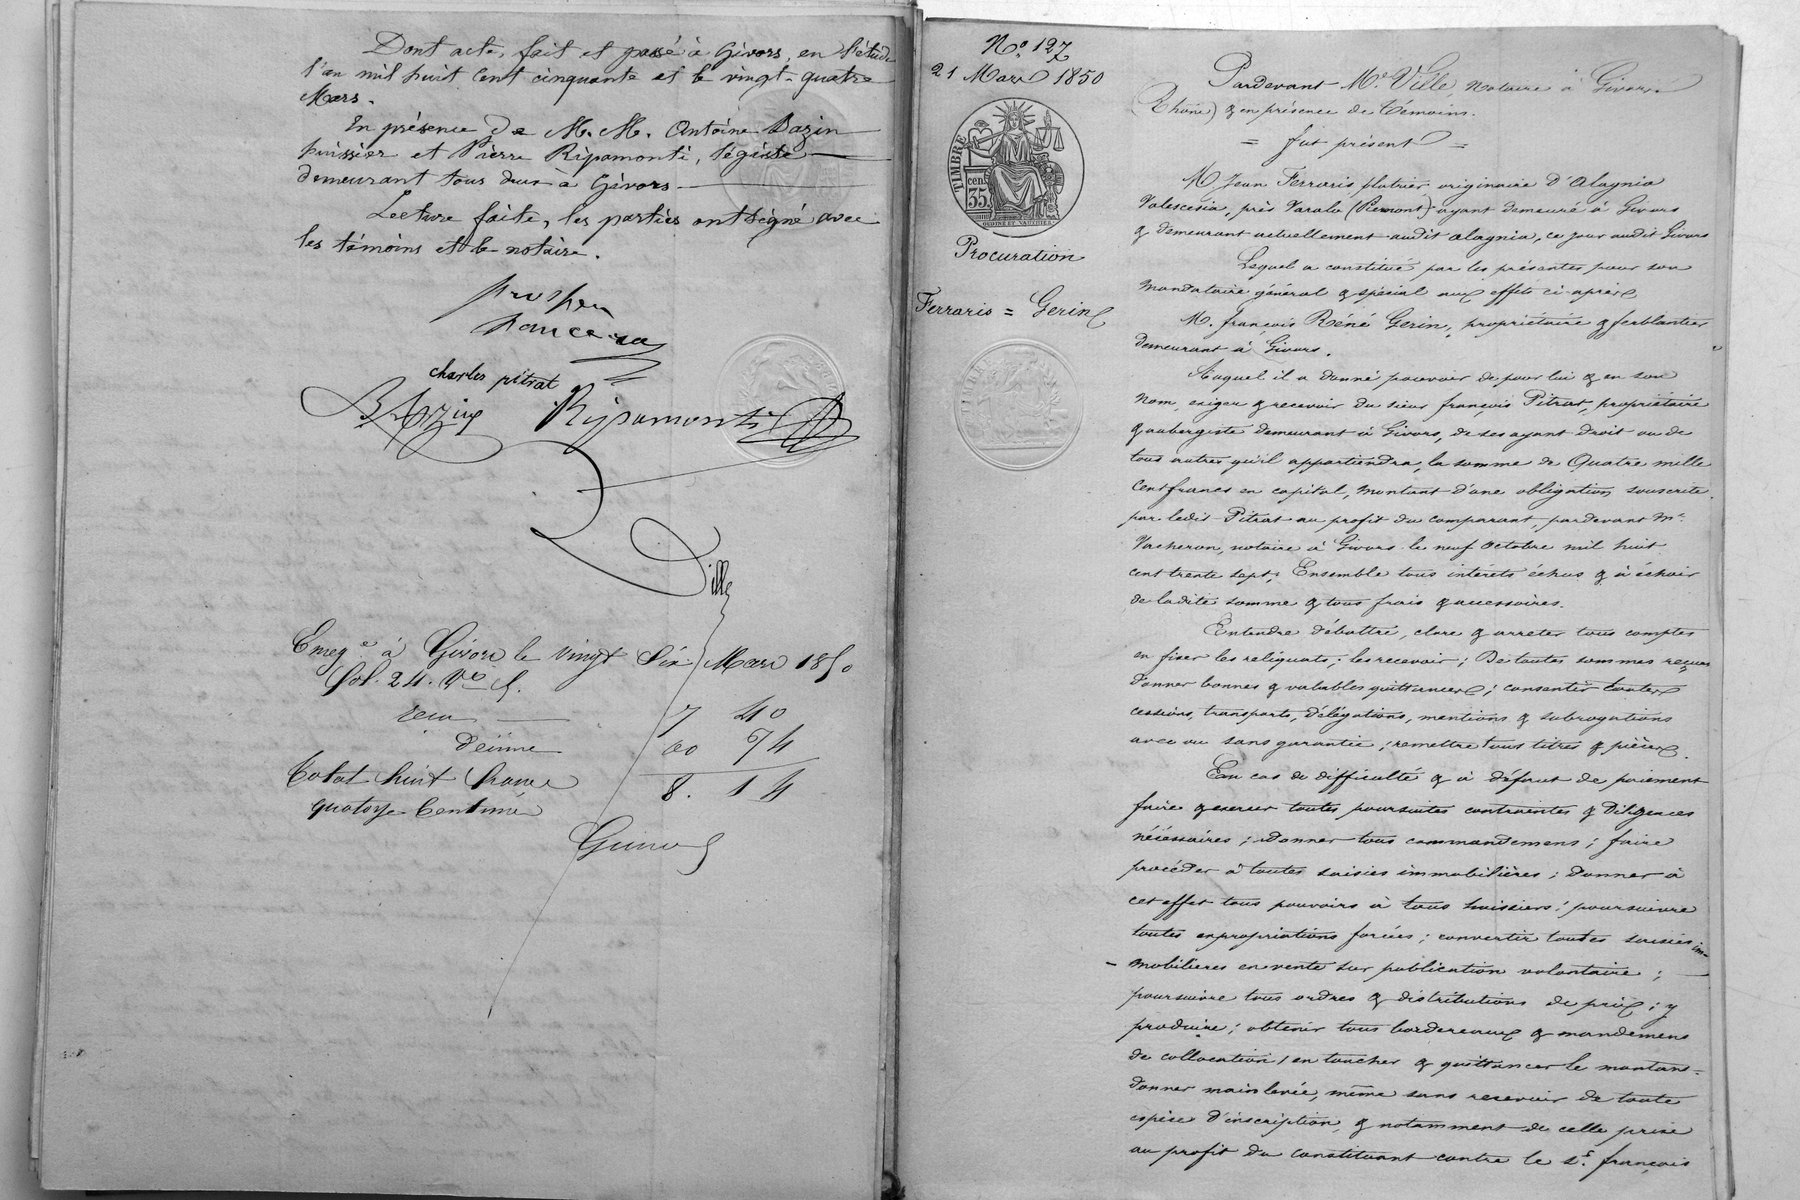 Dont acte, fait et passé à Givors, en l'étude
l'an mil huit cent cinquante et le vingt-quatre
Mars.
En présence de M. M. Antoine Bazin
huissier et Pierre Ripamonti, légiste
demeurant tous deux à Givors.
Lecture faite, les parties ont signé avec
les témoins et le notaire.
charles pitrat
Bazin Ripamonti
Ville
à Givors le vingt six Mars 1850
fol. 24. Vo
recu 7 40
décime 00 74
Total huit francs 8. 14
quatorze centimes
No. 127
21 Mars 1850
TIMBRE
35 cen
Procuration
Ferraris = Gerin
Pardevant Me. Ville, Notaire à Givors
(Rhône) & en présence de Témoins.
= fut présent =
M Jean Ferraris, platrier originaire d'Alagnia
Valescesia, près Varalo (Piemont) ayant demeuré à Givors
& demeurant actuellement audit Alagnia, ce jour audit Givors
Lequel a constitué par les présentes pour son
mandataire général & spécial aux effets ci-après
M. françois Réné Gerin, propriétaire & ferblantier
demeurant à Givors.
Auquel il a donné pouvoir de pour lui & en son
nom, exiger & recevoir du sieur françois Pitrat, propriétaire
& aubergiste demeurant à Givors, de ses ayant droit ou de
tous autres qu'il appartiendra, la somme de Quatre mille
cent francs en capital, montant d'une obligation souscrite
par ledit Pitrat au profit du comparant, pardevant Me.
Vacheron, notaire à Givors le neuf Octobre mil huit
cent trente sept; Ensemble tous intérêts échus & à échoir
de ladite somme & tous frais & accessoires.
Entendre débattre, clore & arreter tous comptes
en fixer les reliquats; les recevoir; De toutes sommes reçues
donner bonnes & valables quittances; consentir toutes
cessions, transports, délégations, mentions & subrogations
avec ou sans garantie; remettre tous titres & pièces.
En cas de difficulté & à défaut de paiement
faire & exercer toutes poursuites contraintes & diligences
nécessaires; donner tous commandemens; faire
procéder à toutes saisies immobilières; donner à
cet effet tous pouvoirs à tous huissiers; poursuivre
toutes expropriations forcées; convertir toutes saisies im-
mobilieres en vente sur publication volontaire;
poursuivre tous ordres & distributions de prix; y
produire; obtenir tous bordereaux & mandemens
de collocation, en toucher & quittancer le montant-
donner mainlevée, même sans recevoir de toute
espèce d'inscription, & notamment de celle prise
au profit du constituant contre le Sr. françois